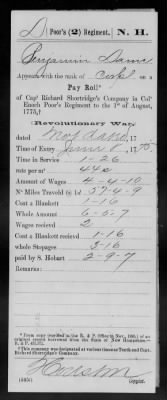 D | Poor's (2) Regiment, | N. H.
Benjamin Dame
Appears with the rank of Corpl on a
Pay Roll*
of Capt Richard Shortridge's Company in Col°
Enoch Poor's Regiment to the 1st of August,
1775,†
(Revolutionary War,)
dated 17
Time of Entry June 8, 1775.
Time in Service 1-26
rate per mo
Amount of Wages 4-4-10
N° Miles Traveld 57-4-9
Coat & Blankett 1-16
Whole Amount 6-5-7
Wages recieved 2
Coat & Blankett recievd 1-16
whole Stopages 3-16
paid by S. Hobart 2-9-7
Remarks:
*From copy (certified in the R. & P. Office in Nov., 1890,) of
an original record borrowed from the State of New Hampshire—
R. & P.
†This company was designated at various times Tenth and Capt.
Richard Shortridge's Company.
Copyist.